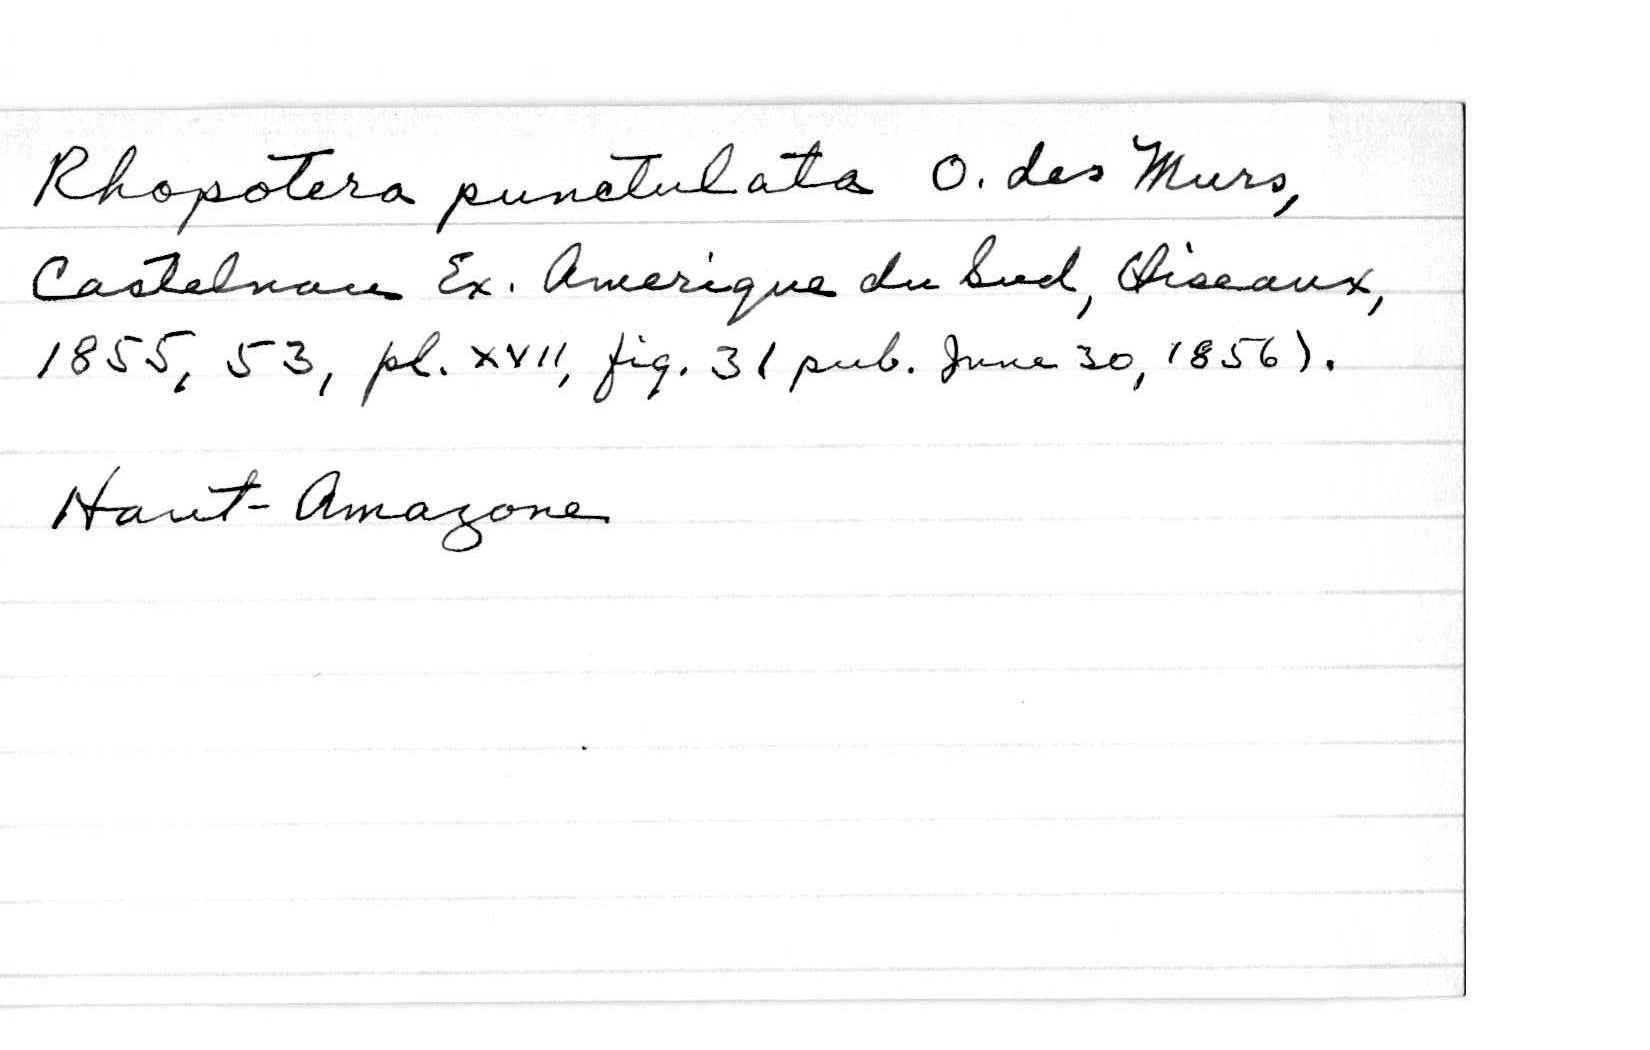 Rhopotera punctulata O. des Murs,
Castelnau Ex. Amerique du Sud, Oiseaux,
1855, 53, pl. XVII, fig. 3 ( pub. June 30, 1856).
Haut-Amazone